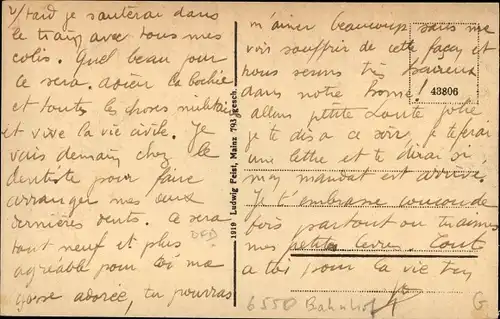 v/ tard je sauterai dans
le train avec tous mes
colis. Quel beau jour
ce sera. adieu la bochie
et toutes les choses militaires
et vive la vie civile. Je
vais demain chez le
dentiste pour faire
arranger mes deux
dernières dents. Ce sera
tout neuf et plus
agréable pour toi ma
gosse adorée, tu pourras
1919 Ludwig Feist, Mainz 783 gesch.
m'aimer beaucoup sans me
voir souffrir de cette façon et
nous serons très heureux
dans notre home!
43806
allons petite Loute jolie
je te dis a ce soir, je te ferai
une lettre et te dirai si
mon mandat est arrivé.
Je t'embrasse
fois partout ou tu aimes
mes petites lèvres. Tout
a toi pour la vie ton
6550 Bahnhof
G